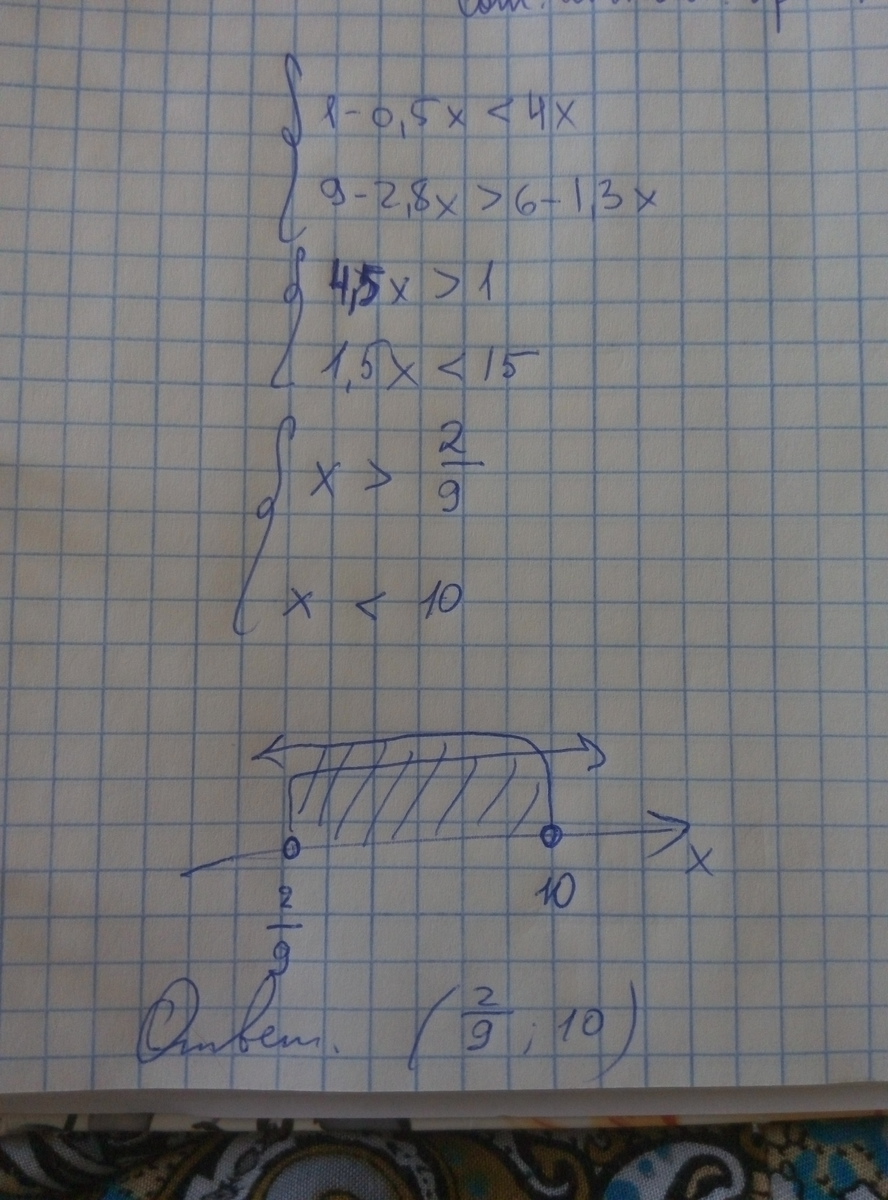 1-0,5x < 4x
9-2,8x > 6-1,3x
4,5x > 1
1,5x < 15
x > 2/9
x < 10
x
2/9 10
Ответ. (2/9; 10)